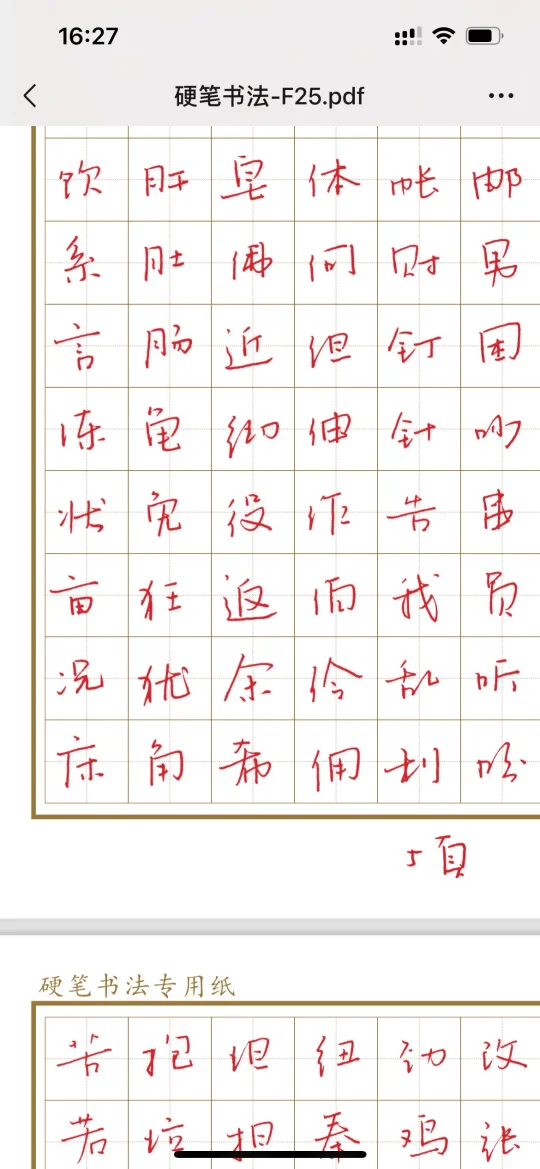 16:27
硬笔书法-F25.pdf
饮 肝 皂 体 帐 邮
系 肚 佛 何 财 男
言 肠 近 但 钉 困
冻 龟 彻 伸 针 吵
状 免 役 作 告 串
亩 狂 返 佰 我 员
况 犹 余 伶 乱 听
床 角 希 佣 利 吩
5页
硬笔书法专用纸
苦 抱 坦 纽 劲 改
若 垃 担 奉 鸡 张